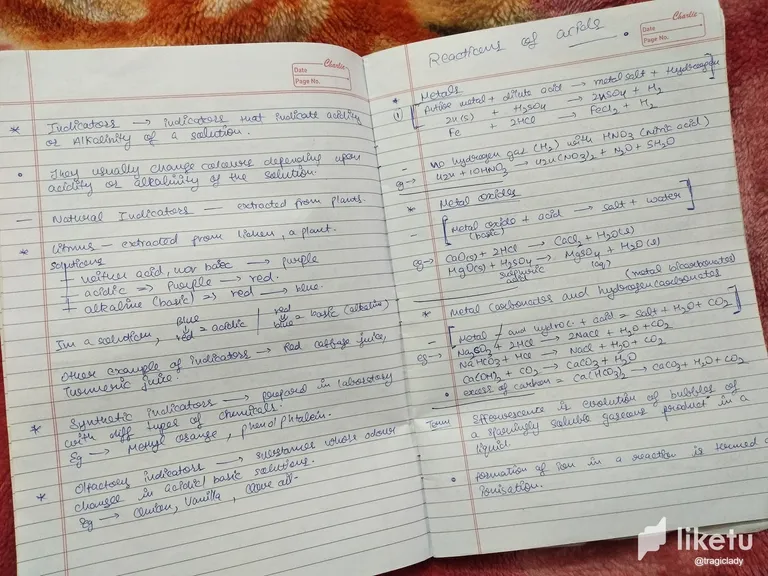 Charlie
Date
Page No.
* Indicators → indicators that indicate acidity
or Alkalinity of a solution.
• They usually change colour depending upon
acidity or alkalinity of the solution.
— Natural Indicators — extracted from plants.
* Litmus — extracted from lichen, a plant.
solutions
neither acid, nor basic → purple
acidic → purple → red.
alkaline (basic) => red → blue.
In a solution, blue ↓ red = acidic / red ↓ blue = basic (alkaline)
Other example of indicators → Red cabbage juice,
Turmeric juice.
* Synthetic indicators → prepared in laboratory
with diff types of chemicals.
Eg → Methyl orange, phenolphtalein.
* Olfactory indicators → substances whose odour
changes in acidic/basic solutions.
Eg → Onion, Vanilla, clove oil-
Charlie
Date
Page No.
Reactions of acids.
* Metals
① [Active metal + dilute acid → metal salt + Hydrogen
Zn(s) + H2SO4 → ZnSO4 + H2
Fe + 2HCl → FeCl2 + H2]
- no hydrogen gas (H2) with HNO3 (nitric acid)
eg → 4Zn + 10HNO3 → 4Zn(NO3)2 + N2O + 5H2O
* Metal Oxides
- [Metal oxide + acid → salt + water]
(basic)
eg → CaO(s) + 2HCl → CaCl2 + H2O(l)
MgO(s) + H2SO4 → MgSO4 + H2O(l)
sulphuric acid (aq)
(metal bicarbonates)
* Metal Carbonates and hydrogencarbonates
- [Metal / and hydroc. + acid = salt + H2O + CO2]
eg → Na2CO3 + 2HCl → 2NaCl + H2O + CO2
NaHCO3 + HCl → NaCl + H2O + CO2
Ca(OH)2 + CO2 → CaCO3 + H2O
• excess of carbon = Ca(HCO3)2 → CaCO3 + H2O + CO2
Term Effervescence is evolution of bubbles of
a sparingly soluble gaseous product in a
liquid.
• Formation of ion in a reaction is termed a
ionisation.
liketu
@tragiclady